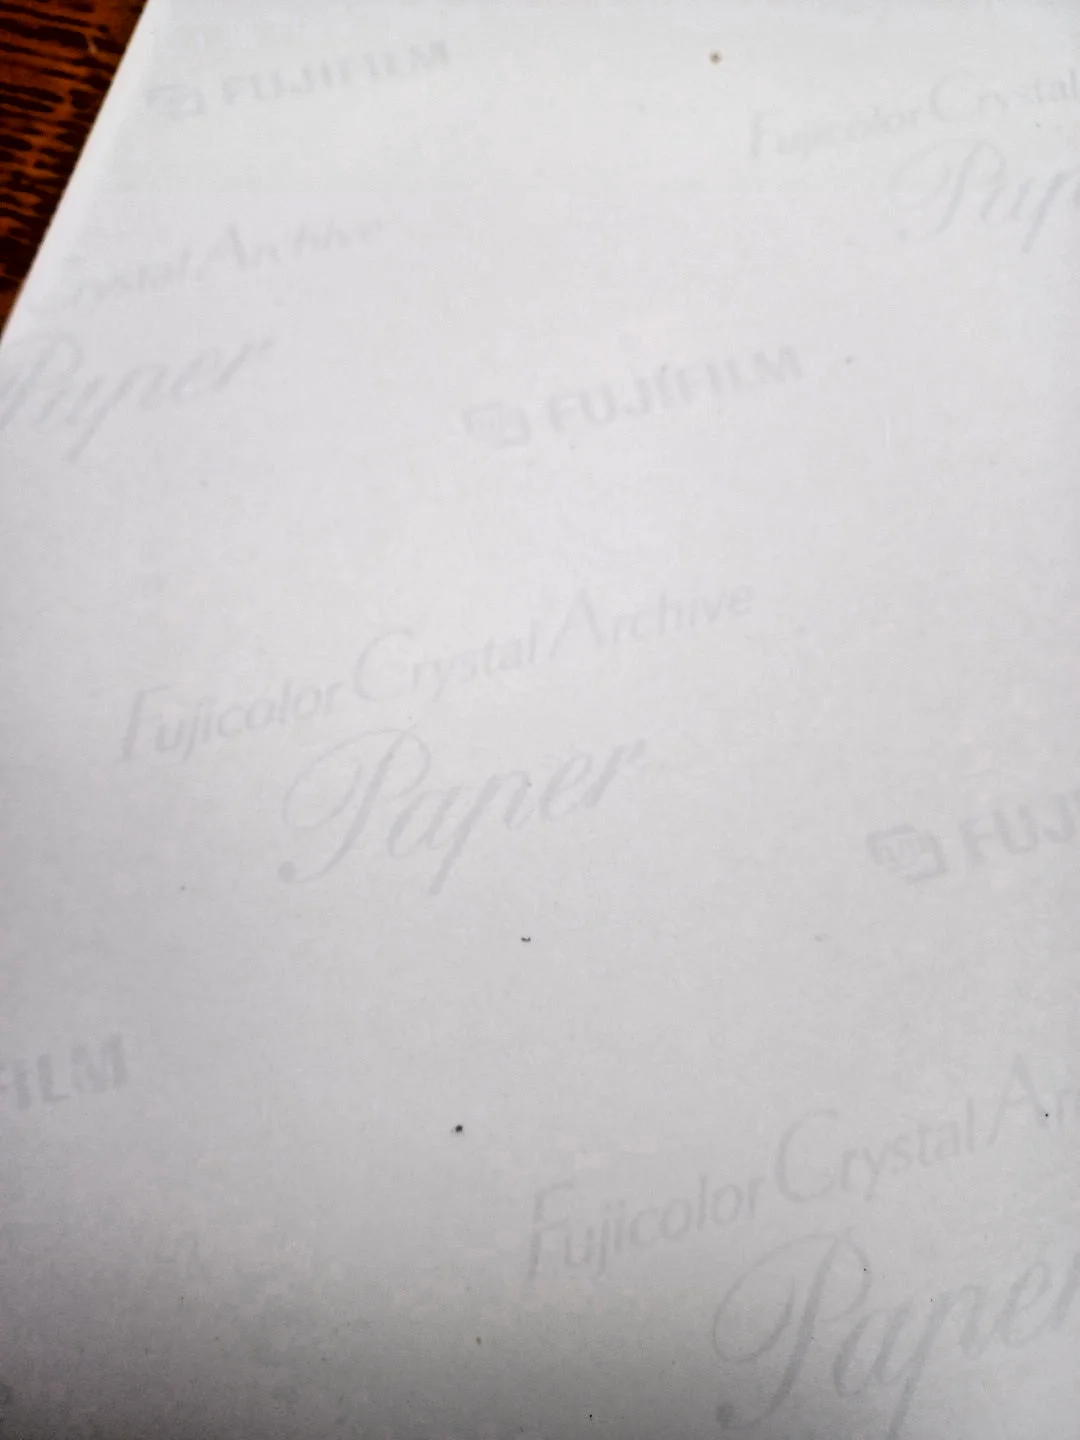 FUJIFILM
Fujicolor Crystal
Crystal Archive
Paper
FUJIFILM
Fujicolor Crystal Archive
Paper
FUJI
FILM
Fujicolor Crystal Ar
Paper